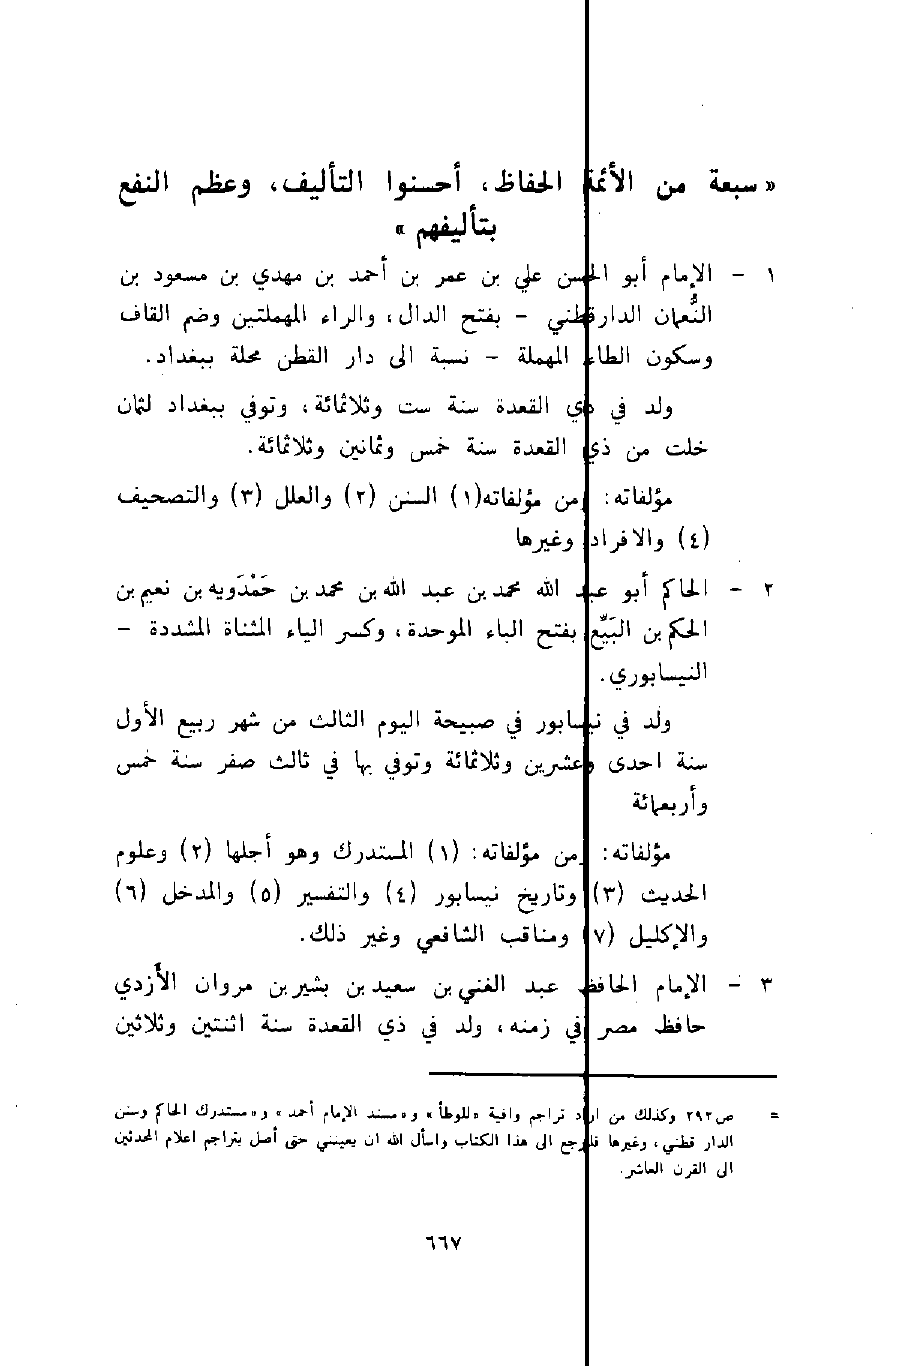 « سبعة من الأئمة الحفاظ، أحسنوا التأليف، وعظم النفع
بتأليفهم »
١ - الإمام أبو الحسن علي بن عمر بن أحمد بن مهدي بن مسعود بن
النُّعمان الدارقطني - بفتح الدال، والراء المهملتين وضم القاف
وسكون الطاء المهملة - نسبة الى دار القطن محلة ببغداد.
ولد في ذي القعدة سنة ست وثلاثمائة، وتوفي ببغداد لثمان
خلت من ذي القعدة سنة خمس وثمانين وثلاثمائة.
مؤلفاته: من مؤلفاته(١) السنن (٢) والعلل (٣) والتصحيف
(٤) والافراد وغيرها
٢ - الحاكم أبو عبد الله محمد بن عبد الله بن محمد بن حَمْدَويه بن نعيم بن
الحكم بن البَيِّع بفتح الباء الموحدة، وكسر الياء المثناة المشددة -
النيسابوري.
ولد في نيسابور في صبيحة اليوم الثالث من شهر ربيع الأول
سنة احدى وعشرين وثلاثمائة وتوفي بها في ثالث صفر سنة خمس
وأربعمائة
مؤلفاته: من مؤلفاته: (١) المستدرك وهو أجلها (٢) وعلوم
الحديث (٣) وتاريخ نيسابور (٤) والتفسير (٥) والمدخل (٦)
والإكليل (٧) ومناقب الشافعي وغير ذلك.
٣ - الإمام الحافظ عبد الغني بن سعيد بن بشير بن مروان الأزدي
حافظ مصر في زمنه، ولد في ذي القعدة سنة اثنتين وثلاثين
= ص٢٩٢ وكذلك من اراد تراجم وافية «للوطأ» و«مسند الإمام أحمد» و«مستدرك الحاكم وسنن
الدار قطني، وغيرها فليرجع الى هذا الكتاب واسأل الله ان يعينني حتى أصل بتراجم اعلام المحدثين
الى القرن العاشر.
٦٦٧